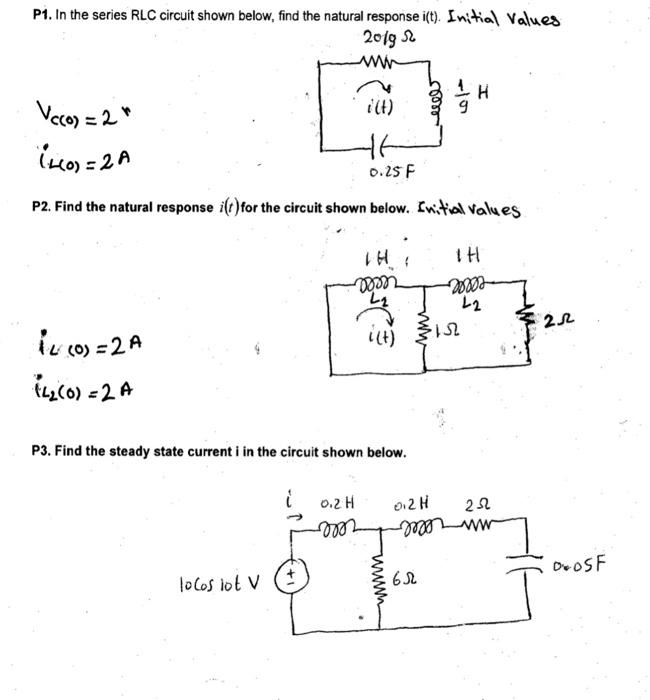 P1. In the series RLC circuit shown below, find the natural response i(t). Initial Values
20/9 Ω
1/9 H
i(t)
Vc(0) = 2 v
iL(0) = 2 A
0.25 F
P2. Find the natural response i(t) for the circuit shown below. Initial Values
1 H i 1 H
L2 L2
i(t) 1Ω 2Ω
iL(0) = 2 A
iL2(0) = 2 A
P3. Find the steady state current i in the circuit shown below.
i 0.2 H 0.2 H 2Ω
10 Cos 10t V
+
-
6Ω
0.05F